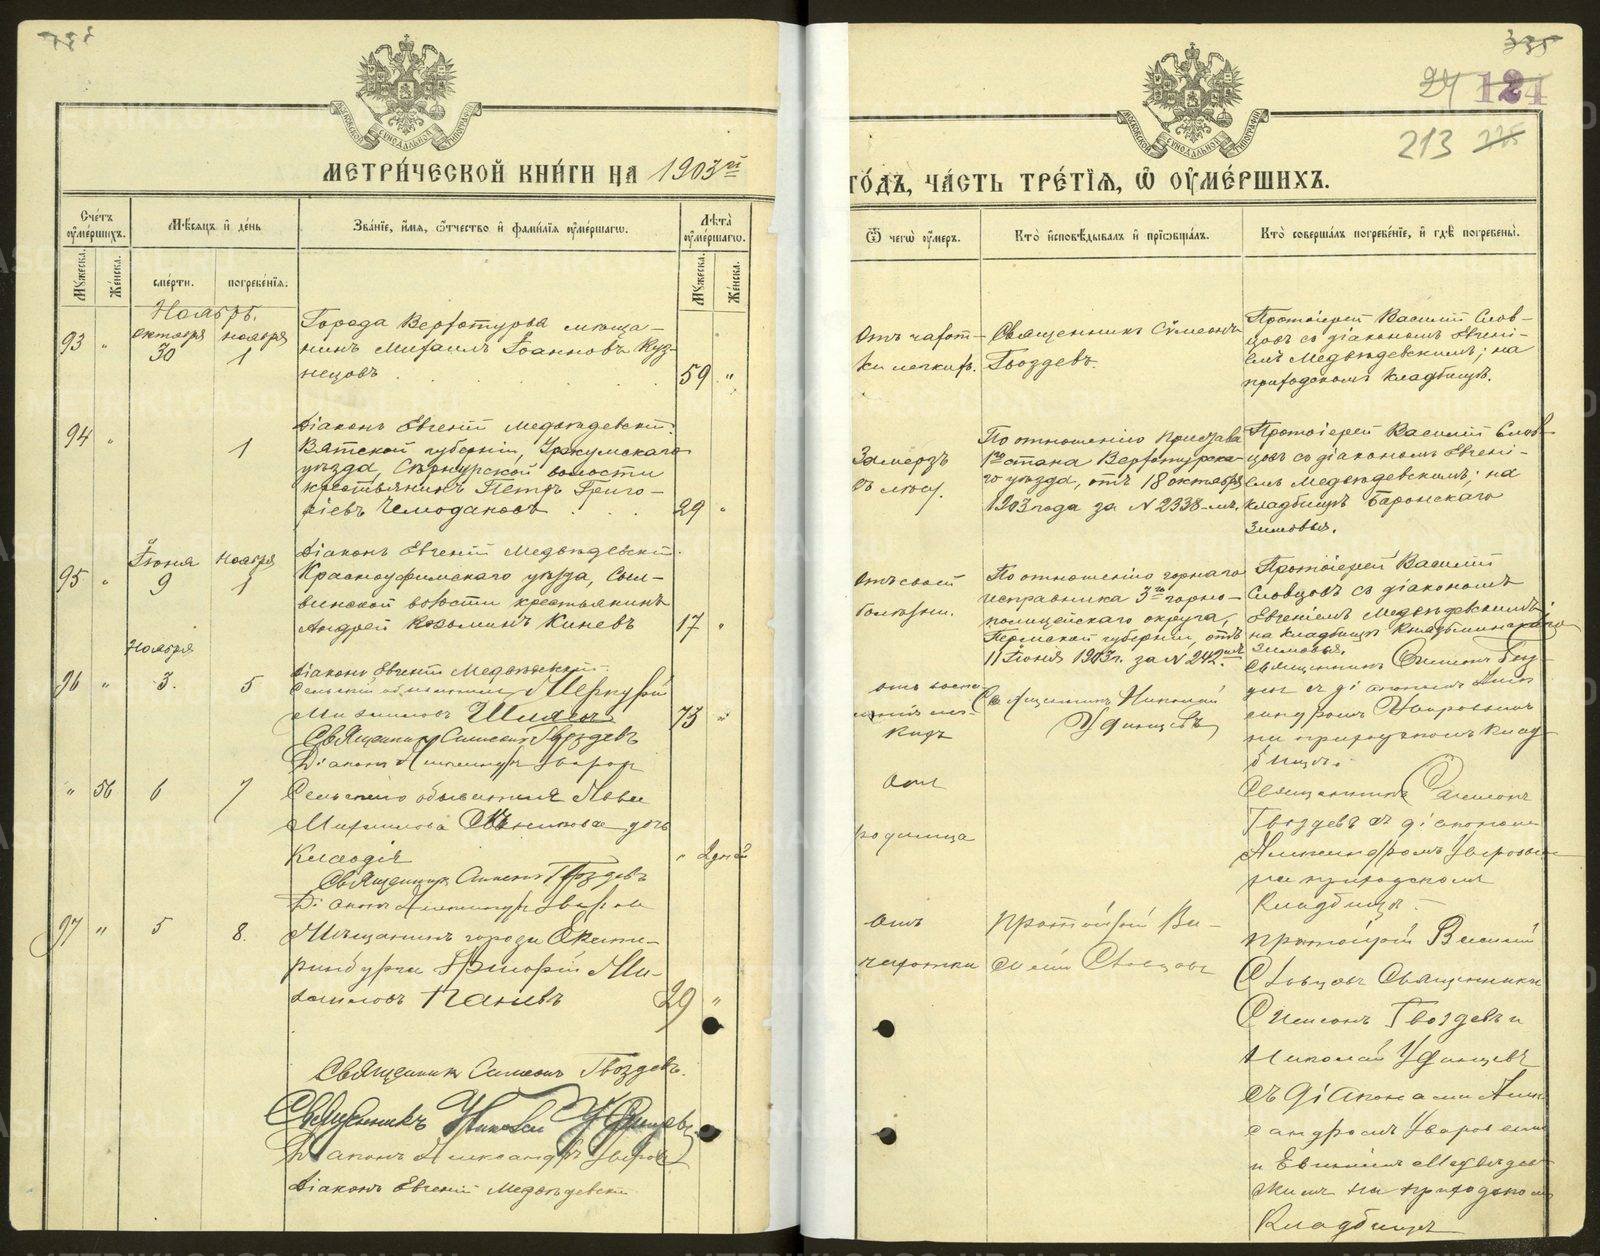 335
24 124
213
МЕТРИ́ЧЕСКОЙ КНИ́ГИ НА 1903й
ГО́ДЪ, ЧА́СТЬ ТРЕ́ТІѦ, Ѡ ОУМЕ́РШИХЪ.
Сче́тъ оумершихъ.
Мѣсяцъ и день
Зва́ніе, и́мя, о́тчество и фами́лія оуме́ршагѡ.
Лѣта̀ оуме́ршагѡ.
Ѿ чегѡ̀ оу́меръ.
Кто̀ исповѣ́дывалъ и прїѡбща́лъ.
Кто̀ соверша́лъ погребе́ніе, и гдѣ̀ погребены̀.
Мужеска.
Женска.
сме́рти.
погребе́нія.
Мужеска.
Женска.
Ноябрь.
93 " октября 30 ноября 1
Города Верхотурья мѣща-
нинъ Михаилъ Іоанновъ Куз-
нецовъ
59 "
Отъ чахот-
ки легкихъ.
Священникъ Сѵмеонъ
Гвоздевъ.
Протоіерей Василій Слов-
цовъ съ діакономъ Евгені-
емъ Медвѣдевскимъ; на
приходскомъ кладбищѣ.
Діаконъ Евгеній Медвѣдевскій.
94 " 1
Вятской губерніи, Уржумскаго
уѣзда, Сернурской волости
крестьянинъ Петръ Григо-
ріевъ Чемодановъ
29 "
Замерзъ
въ лѣсу.
По отношенію пристава
1го стана Верхотурска-
го уѣзда, отъ 18 октября
1903 года за № 2338-мъ.
Протоіерей Василій Слов-
цовъ съ діакономъ Евгені-
емъ Медвѣдевскимъ; на
кладбищѣ Баронскаго
зимовья.
Діаконъ Евгеній Медвѣдевскій.
95 " Іюня 9 Ноября 1
Красноуфимскаго уѣзда, Сыл-
винской волости крестьянинъ
Андрей Козьминъ Киневъ
17 "
Отъ своей
болѣзни.
По отношенію горнаго
исправника 3го горно-
полицейскаго округа,
Пермской губерніи, отъ
11 Іюня 1903 г. за № 242мъ
Протоіерей Василій
Словцовъ съ діакономъ
Евгеніемъ Медвѣдевскимъ
на кладбищѣ
зимовья.
Діаконъ Евгеній Медвѣдевскій.
Ноября
96 " 3. 5
Сельскій обыватель Меркурій
Михаиловъ Шиляевъ
73 "
отъ воспа-
ленія лег-
кихъ
Священникъ Николай
Удинцевъ
Священникъ Симеонъ Гвоз-
девъ съ діакономъ Алек-
сандромъ Уваровымъ
на приходскомъ клад-
бищѣ.
Священникъ Симеонъ Гвоздевъ
Діаконъ Александръ Уваровъ
" 56 6 7
Сельскаго обывателя
Михаилова дочь
Клавдія
" 2 дней
Отъ
родимца
Священникъ Симеонъ
Гвоздевъ съ діакономъ
Александромъ Уваровымъ
на приходскомъ
кладбищѣ.
Священникъ Симеонъ Гвоздевъ
Діаконъ Александръ Уваровъ
97 " 5 8.
Мѣщанинъ города Екате-
ринбурга Григорій Ми-
хаиловъ Паневъ
29 "
Отъ
чахотки
Протоіерей Ва-
силій Словцовъ
Протоіерей Василій
Словцовъ Священники
Симеонъ Гвоздевъ и
Николай Удинцевъ
съ діаконами Алек-
сандромъ Уваровымъ
и Евгеніемъ Медвѣдев-
скимъ на приходскомъ
кладбищѣ
Священникъ Симеонъ Гвоздевъ.
Священникъ Николай Удинцевъ
Діаконъ Александръ Уваровъ
Діаконъ Евгеній Медвѣдевскій
METRIKI.GASO-URAL.RU